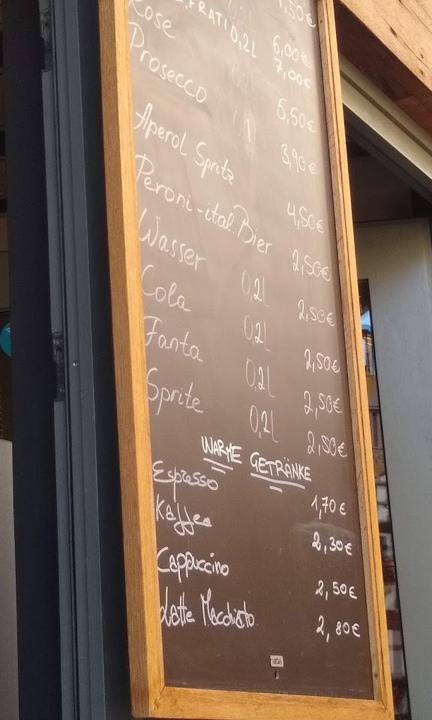 1,50€
FRATI 0,2L 6,00€
7,00€
Rose 5,50€
Prosecco 3,90€
Aperol Spritz 4,50€
Peroni-ital. Bier 2,50€
Wasser 0,2l 2,50€
Cola 0,2l 2,50€
Fanta 0,2l 2,50€
Sprite 0,2l 2,50€
WARME GETRÄNKE
Espresso 1,70€
Kaffee 2,30€
Cappuccino 2,50€
Latte Macchiato 2,80€